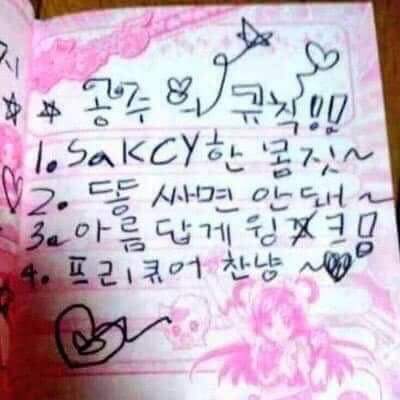 ☆ 공주의 규칙!!
1. SaKCY한 몸짓~
2. 똥 싸면 안돼~
3. 아름답게 윙크!!
4. 프리큐어 찬냥~♥